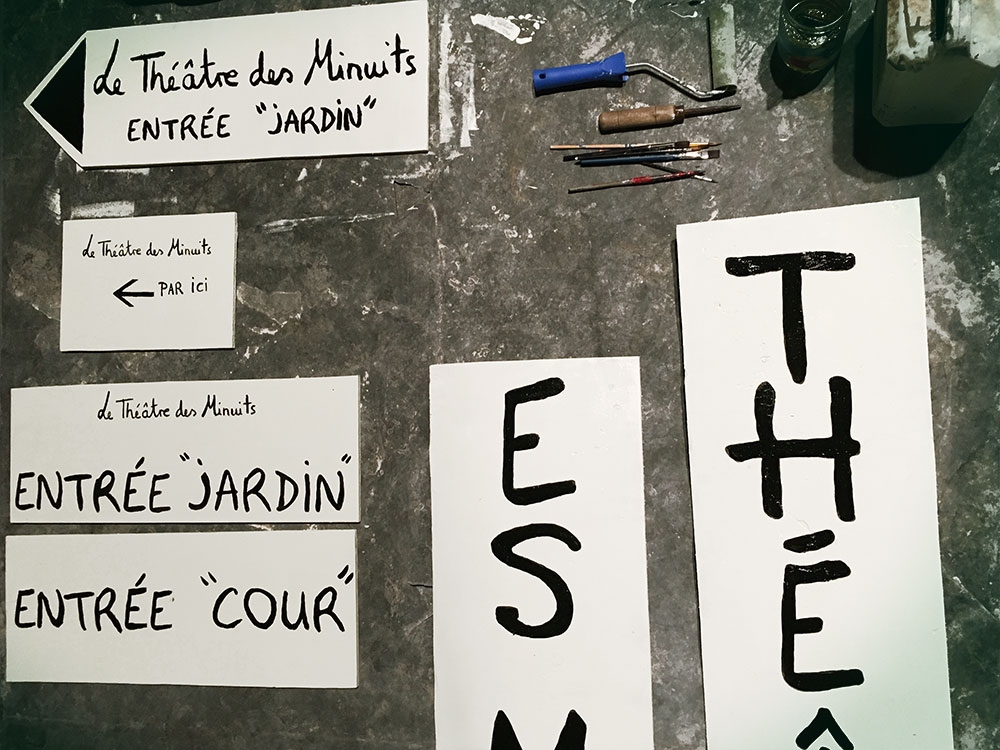 Le Théâtre des Minuits
ENTRÉE "JARDiN"
Le Théâtre des Minuits
← PAR ici
Le Théâtre des Minuits
ENTRÉE "JARDiN"
ENTRÉE "COUR"
E
S
M
T
H
É
Â